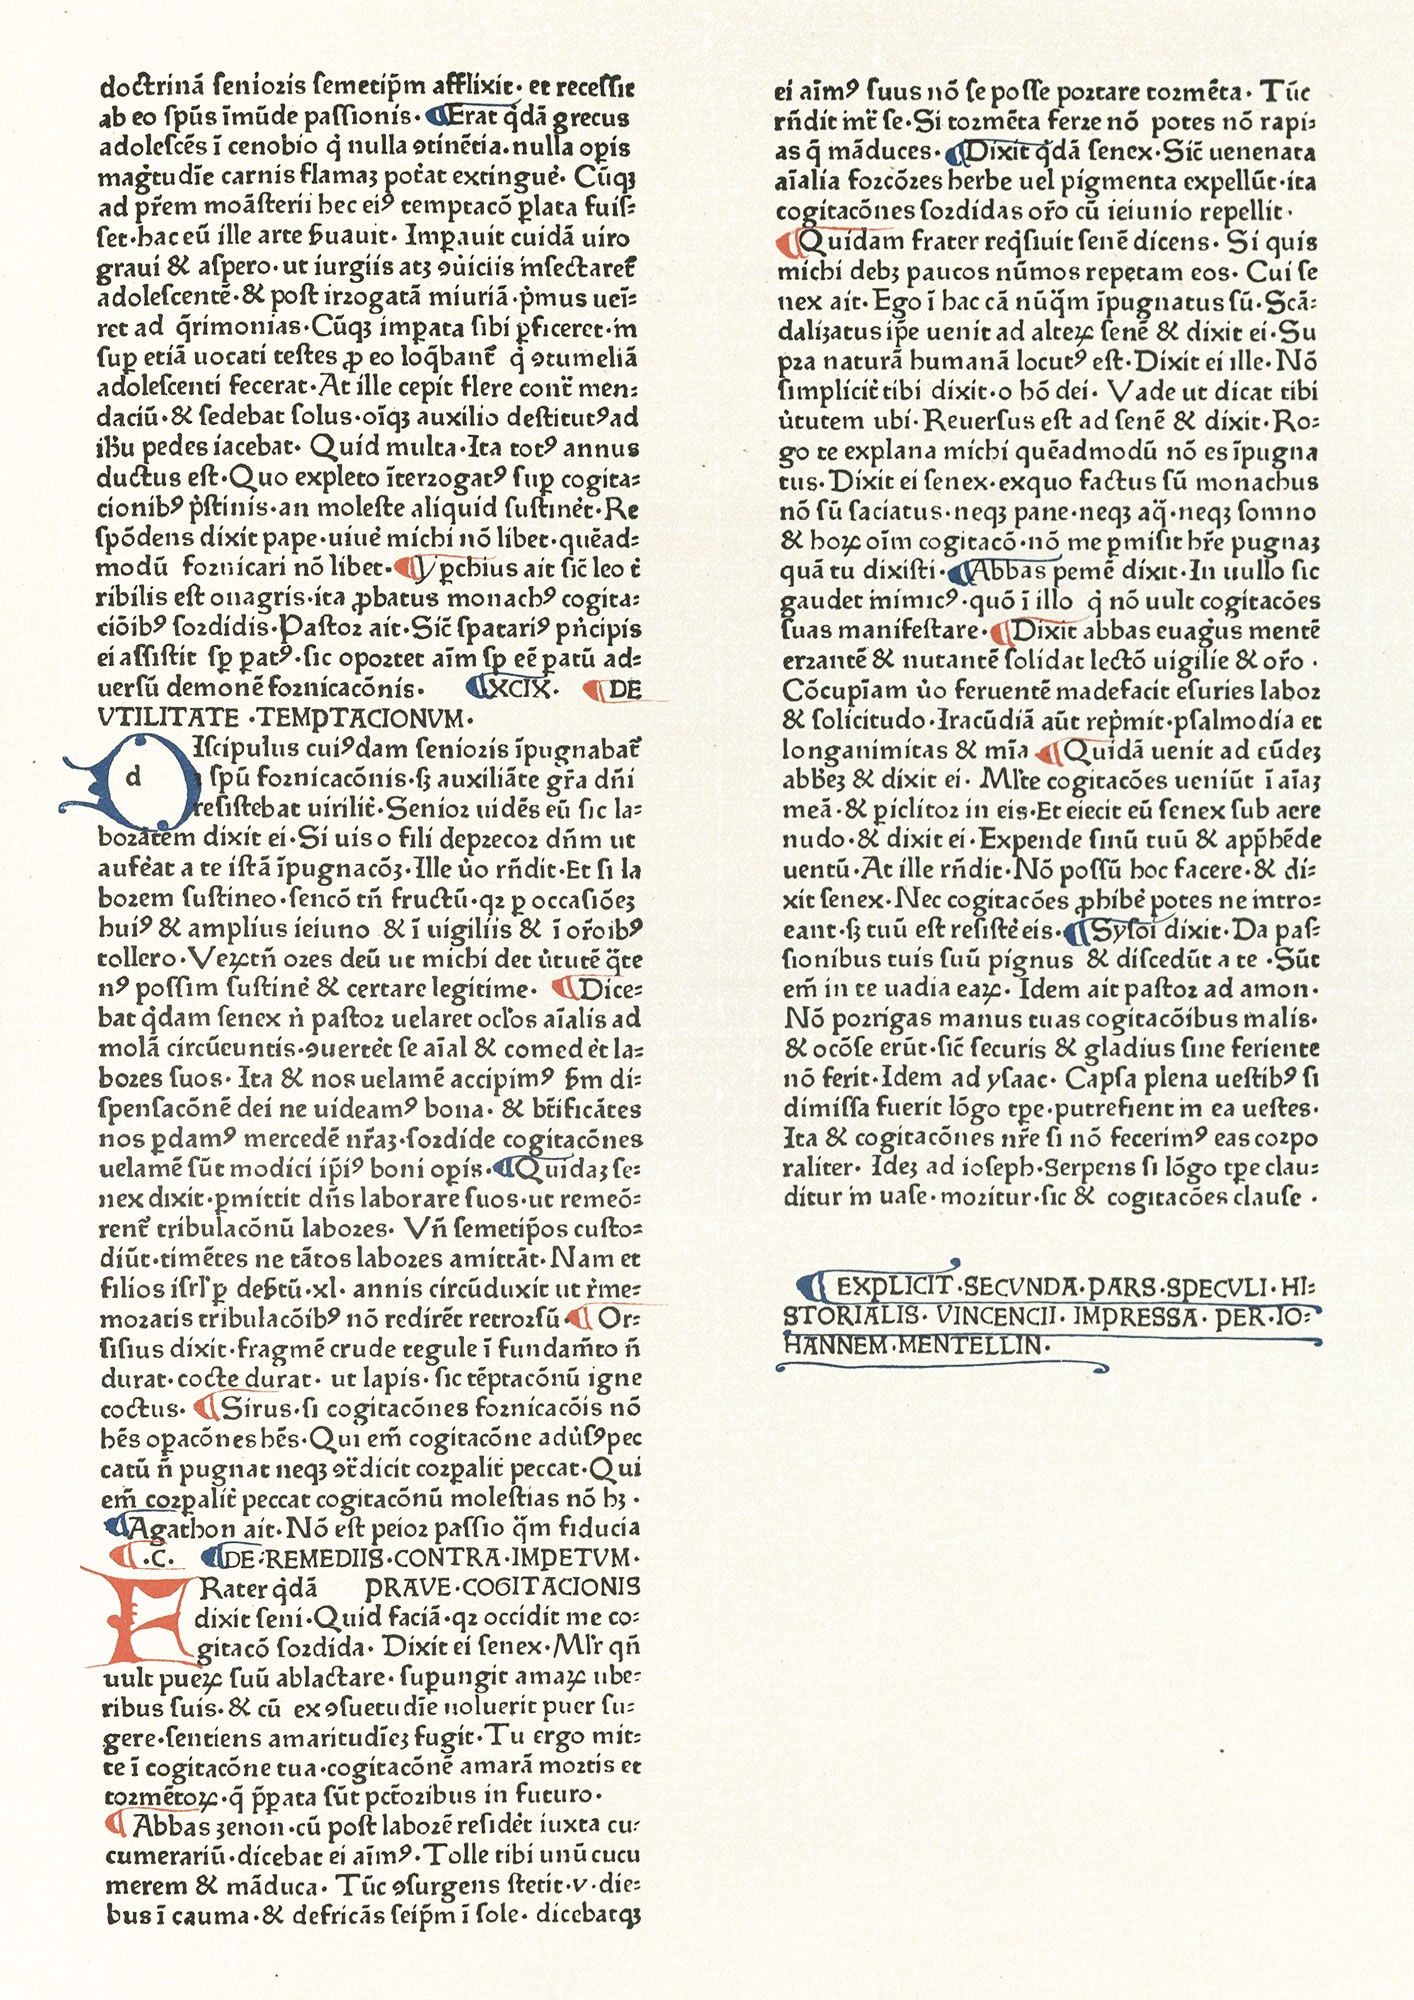 doctrinā senioris semetip̄m afflixit· et recessit
ab eo sp̄us īmūde passionis· Erat q̇dā grecus
adolescēs ī cenobio q̇ nulla ꝯtinētia·nulla oꝑis
mag̓tudīe carnis flamaꝫ pot̓at extingue̓· Cūqꝫ
ad p̄rem moāsterii hec eiꝰ temptacō ꝑlata fuis⸗
set·hac eū ille arte ẜuauit· Imꝑauit cuidā uiro
graui & aspero·ut iurgiis atqꝫ ꝯuiciis insectaret᷑
adolescentē·& post irrogatā iniuriā·p̓mus ueī⸗
ret ad q̄rimonias·Cūqꝫ imꝑata sibi ꝑficeret·in
suꝑ etiā uocati testes ꝓ eo loq̄bant᷑ q̇ ꝯtumeliā
adolescenti fecerat·At ille cepit flere cont̄ men⸗
daciū·& sedebat solus·oīqꝫ auxilio destitutꝰad
ih̄u pedes iacebat· Quid multa·Ita totꝰ annus
ductus est·Quo expleto īterrogatꝰ suꝑ cogita⸗
cionibꝰ p̓stinis·an moleste aliquid sustine̓t·Re
spōdens dixit pape·uiue̓ michi nō libet·quēad⸗
modū fornicari nō libet· Ypchius ait sic̄ leo t̓
ribilis est onagris·ita ꝓbatus monachꝰ cogita⸗
ciōibꝰ sordidis·Pastor ait·Sic̄ spatariꝰ p̓ncipis
ei assistit sꝑ ꝑatꝰ·sic oportet aīm sꝑ eē ꝑatū ad⸗
uersū demonē fornicacōnis· XCIX· DE
VTILITATE ·TEMPTACIONVM·
d Iscipulus cuiꝰdam senioris īpugnabat᷑
a spū fornicacōnis·sꝫ auxiliāte gr̄a dn̄i
resistebat uirilit̓·Senior uidēs eū sic la⸗
borātem dixit ei·Si uis o fili deprecor dn̄m ut
aufe̓at a te istā īpugnacōꝫ·Ille u̓o rn̄dit·Et si la
borem sustineo·sencō tn̄ fructū·qꝛ ꝑ occasiōeꝫ
huiꝰ & amplius ieiuno & ī uigiliis & ī or̄oibꝰ
tollero·Veꝝtn̄ ores deū ut michi det u̓tutē q̄te
nꝰ possim sustine̓ & certare legitime· Dice⸗
bat q̇dam senex n̓ pastor uelaret ocl̓os aīalis ad
molā circūeuntis·ꝯuerte̓t se aīal & comede̓t la⸗
bores suos· Ita & nos uelamē accipimꝰ ẜm di⸗
spensacōnē dei ne uideamꝰ bona· & bt̄ificātes
nos ꝑdamꝰ mercedē nr̄aꝫ·sordide cogitacōnes
uelamē sūt modici ip̄iꝰ boni oꝑis· Quidaꝫ se⸗
nex dixit·ꝑmittit dn̄s laborare suos·ut remeō⸗
rent᷑ tribulacōnū labores· Vn̄ semetip̄os custo⸗
diūt·timētes ne tātos labores amittāt· Nam et
filios isrl̓ ꝑ deẜtū·xl· annis circūduxit ut r̓me⸗
moratis tribulacōibꝰ nō redirēt retrorsū· Or⸗
sisius dixit·fragmē crude tegule ī fundam̄to n̄
durat·cocte durat· ut lapis· sic tēptacōnū igne
coctus· Sirus·si cogitacōnes fornicacōis nō
hēs oꝑacōnes hēs·Qui em̄ cogitacōne adu̓sꝰpec
catū n̄ pugnat neqꝫ ꝯt̄dicit corꝑalit̓ peccat·Qui
em̄ corꝑalit̓ peccat cogitacōnū molestias nō hꝫ ·
Agathon ait·Nō est peior passio q̄m fiducia
·C· DE·REMEDIIS·CONTRA·IMPETVM·
F Rater q̇dā PRAVE·COGITACIONIS
dixit seni·Quid faciā·qꝛ occidit me co⸗
gitacō sordida· Dixit ei senex·Ml̓r qn̄
uult pueꝝ suū ablactare·suꝑungit amaꝝ ube⸗
ribus suis·& cū ex ꝯsuetudīe uoluerit puer su⸗
gere·sentiens amaritudīeꝫ fugit·Tu ergo mit⸗
te ī cogitacōne tua·cogitacōnē amarā mortis et
tormētoꝝ·q̄ p̄ꝑata sūt pct̄oribus in futuro·
Abbas ꝫenon·cū post laborē reside̓t iuxta cu⸗
cumerariū·dicebat ei aīmꝰ·Tolle tibi unū cucu
merem & māduca· Tūc ꝯsurgens stetit·v·die⸗
bus ī cauma·& defricās seip̄m ī sole· dicebatqꝫ
ei aīmꝰ suus nō se posse portare tormēta· Tūc
rn̄dit int̄ se·Si tormēta ferre nō potes nō rapi⸗
as q̄ māduces· Dixit q̇dā senex·Sic̄ uenenata
aīalia forcōres herbe uel pigmenta expellūt·ita
cogitacōnes sordidas or̄o cū ieiunio repellit·
Quidam frater req̇siuit senē dicens· Si quis
michi debꝫ paucos nūmos repetam eos· Cui se
nex ait·Ego ī hac cā nūq̄m īpugnatus sū·Scā⸗
daliꝫatus ip̄e uenit ad alteꝝ senē & dixit ei·Su
pra naturā humanā locutꝰ est·Dixit ei ille·Nō
simplicit̓ tibi dixit·o hō dei· Vade ut dicat tibi
u̓tutem ubi·Reuersus est ad senē & dixit·Ro⸗
go te explana michi quēadmodū nō es īpugna
tus·Dixit ei senex·exquo factus sū monachus
nō sū saciatus·neqꝫ pane·neqꝫ aq̄·neqꝫ somno
& hoꝝ oīm cogitacō·nō me ꝑmisit hr̄e pugnaꝫ
quā tu dixisti· Abbas pemē dixit·In nullo sic
gaudet inimicꝰ·quō ī illo q̇ nō uult cogitacōes
suas manifestare· Dixit abbas euag̓us mentē
errantē & nutantē solidat lectō uigilie & or̄o ·
Cōcupīam u̓o feruentē madefacit esuries labor
& solicitudo·Iracūdiā aūt rep̓mit·psalmodia et
longanimitas & mīa Quidā uenit ad eūdeꝫ
abb̄eꝫ & dixit ei· Ml̓te cogitacōes ueniūt ī aīaꝫ
meā·& ꝑiclitor in eis·Et eiecit eū senex sub aere
nudo·& dixit ei·Expende sinū tuū & app̄hēde
uentū·At ille rn̄dit·Nō possū hoc facere·& di⸗
xit senex·Nec cogitacōes ꝓhibe̓ potes ne intro⸗
eant·sꝫ tuū est resiste̓ eis· Sysoi dixit·Da pas⸗
sionibus tuis suū pignus & discedūt a te ·Sūt
em̄ in te uadia eaꝝ· Idem ait pastor ad amon·
Nō porrigas manus tuas cogitacōibus malis·
& ocōse erūt·sic̄ securis & gladius sine feriente
nō ferit·Idem ad ysaac· Capsa plena uestibꝰ si
dimissa fuerit lōgo tp̄e·putrefient in ea uestes·
Ita & cogitacōnes nr̄e si nō fecerimꝰ eas corpo
raliter· Ideꝫ ad ioseph·Serpens si lōgo tp̄e clau⸗
ditur in uase·moritur·sic & cogitacōes clause ·
EXPLICIT·SECVNDA·PARS·SPECVLI·HI⸗
STORIALIS· VINCENCII· IMPRESSA· PER·IO⸗
HANNEM·MENTELLIN·